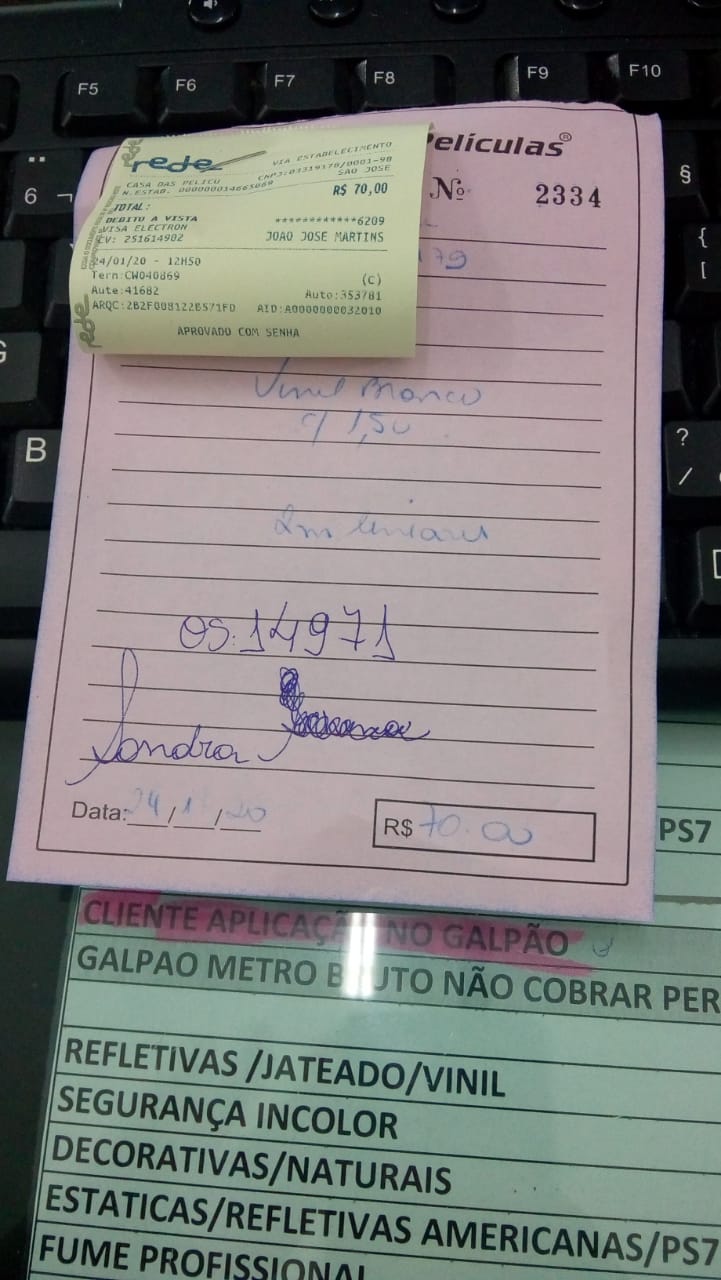 F5 F6 F7 F8 F9 F10
6 ¬
§
{
[
G
B
?
/
Películas®
Nº 2334
79
rede
VIA ESTABELECIMENTO
CASA DAS PELICU CNPJ:03319178/0001-98
N.ESTAB. 000000014663069 SAO JOSE
TOTAL: R$ 70,00
DEBITO A VISTA
VISA ELECTRON ************6209
CV: 251614902 JOAO JOSE MARTINS
24/01/20 - 12H50
Term:CW040869 (C)
Aute:41682 Auto:353781
ARQC:2B2F008122B571FD AID:A0000000032010
APROVADO COM SENHA
rede
Vinil Branco
c/ 1,50
2m lineares
OS.14971
Sandra
Data: 24/1/20
R$ 70.00
PS7
CLIENTE APLICAÇÃO NO GALPÃO
GALPAO METRO BRUTO NÃO COBRAR PER
REFLETIVAS /JATEADO/VINIL
SEGURANÇA INCOLOR
DECORATIVAS/NATURAIS
ESTATICAS/REFLETIVAS AMERICANAS/PS7
FUME PROFISSIONAL